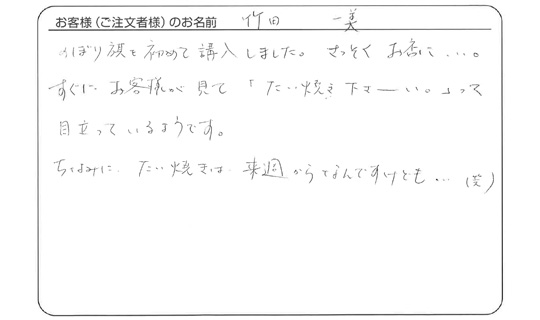 お客様（ご注文者様）のお名前 竹田 一美
のぼり旗を初めて購入しました。さっそくお店に…。
すぐに お客様が見て「たい焼き下さーい。」って
目立っているようです。
ちなみに、たい焼きは 来週からなんですけども…（笑）